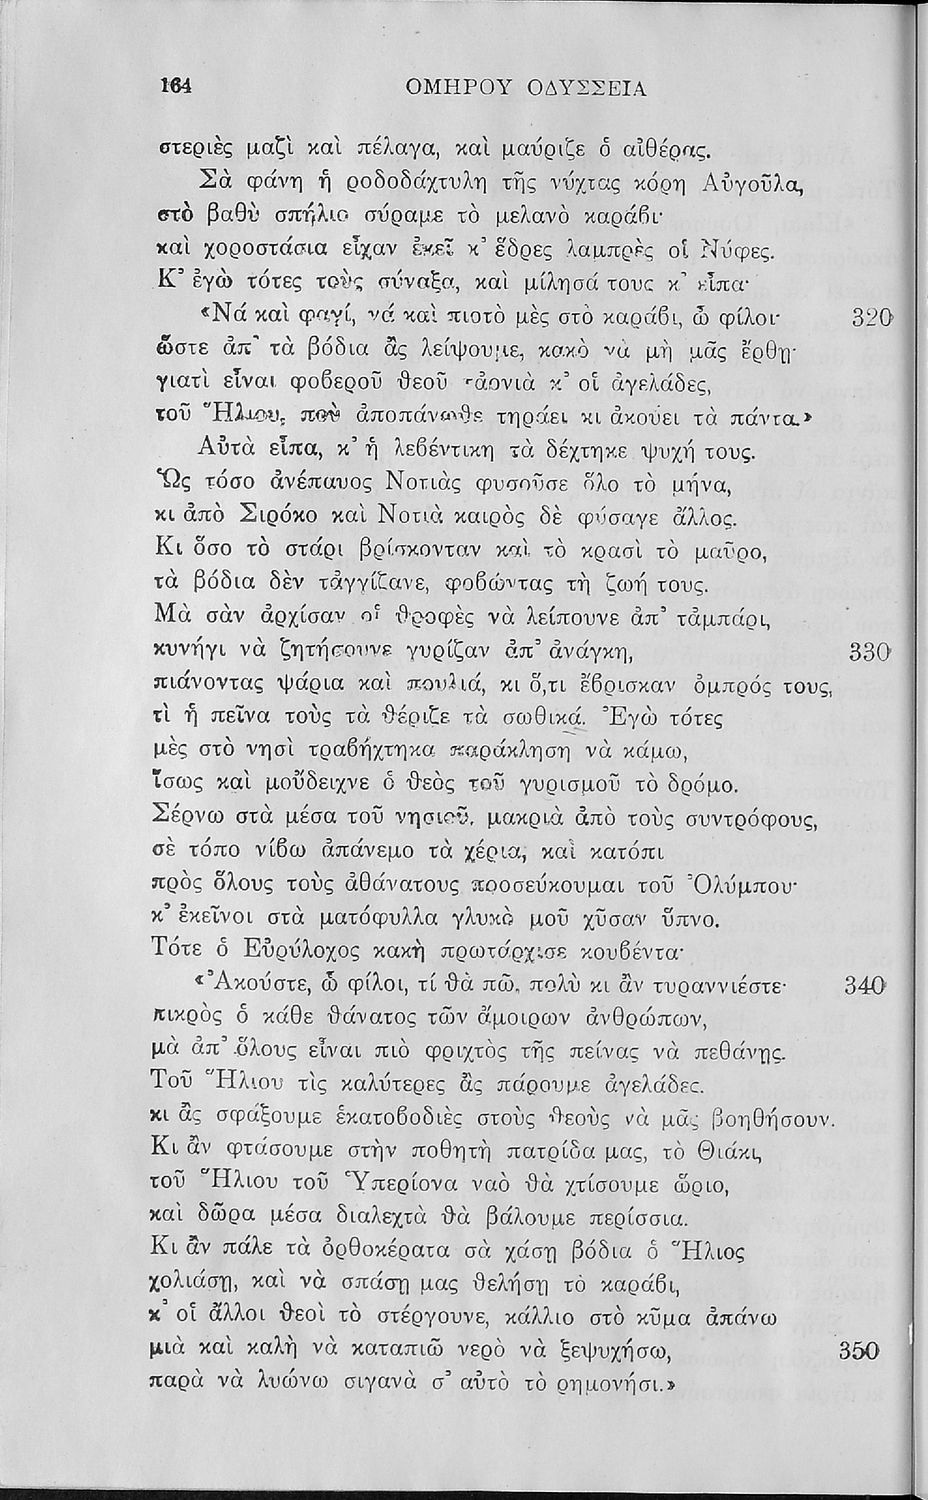 164 ΟΜΗΡΟΥ ΟΔΥΣΣΕΙΑ
στεριὲς μαζὶ καὶ πέλαγα, καὶ μαύριζε ὁ αἰθέρας.
Σὰ φάνη ἡ ροδοδάχτυλη τῆς νύχτας κόρη Αὐγοῦλα,
στὸ βαθὺ σπήλιο σύραμε τὸ μελανὸ καράβι·
καὶ χοροστάσια εἶχαν ἐκεῖ κ᾿ ἕδρες λαμπρὲς οἱ Νύφες.
Κ᾿ ἐγὼ τότες τοὺς σύναξα, καὶ μίλησά τους κ᾿ εἶπα·
«Νά καὶ φαγί, νά καὶ πιοτὸ μὲς στὸ καράβι, ὦ φίλοι· 320
ὥστε ἀπ᾿ τὰ βόδια ἂς λείψουμε, κακὸ νὰ μὴ μᾶς ἔρθῃ·
γιατὶ εἶναι φοβεροῦ θεοῦ τἀρνιὰ κ᾿ οἱ ἀγελάδες,
τοῦ Ἥλιου, ποὺ ἀποπάνωθε τηράει κι ἀκούει τὰ πάντα.»
Αὐτὰ εἶπα, κ᾿ ἡ λεβέντικη τὰ δέχτηκε ψυχή τους.
Ὡς τόσο ἀνέπαυος Νοτιὰς φυσοῦσε ὅλο τὸ μήνα,
κι ἀπὸ Σιρόκο καὶ Νοτιὰ καιρὸς δὲ φύσαγε ἄλλος.
Κι ὅσο τὸ στάρι βρίσκονταν καὶ τὸ κρασὶ τὸ μαῦρο,
τὰ βόδια δὲν τἀγγίζανε, φοβώντας τὴ ζωή τους.
Μὰ σὰν ἀρχίσαν οἱ θροφὲς νὰ λείπουνε ἀπ᾿ τἀμπάρι,
κυνήγι νὰ ζητήσουνε γυρίζαν ἀπ᾿ ἀνάγκη, 330
πιάνοντας ψάρια καὶ πουλιά, κι ὅ,τι ἔβρισκαν ὀμπρός τους,
τὶ ἡ πεῖνα τοὺς τὰ θέριζε τὰ σωθικά. Ἐγὼ τότες
μὲς στὸ νησὶ τραβήχτηκα παράκληση νὰ κάμω,
ἴσως καὶ μοὔδειχνε ὁ θεὸς τοῦ γυρισμοῦ τὸ δρόμο.
Σέρνω στὰ μέσα τοῦ νησιοῦ, μακριὰ ἀπὸ τοὺς συντρόφους,
σὲ τόπο νίβω ἀπάνεμο τὰ χέρια, καὶ κατόπι
πρὸς ὅλους τοὺς ἀθάνατους προσεύκουμαι τοῦ Ὀλύμπου·
κ᾿ ἐκεῖνοι στὰ ματόφυλλα γλυκὸ μοῦ χῦσαν ὕπνο.
Τότε ὁ Εὐρύλοχος κακὴ πρωτάρχισε κουβέντα·
«Ἀκούστε, ὦ φίλοι, τί θὰ πῶ, πολὺ κι ἂν τυραννιέστε· 340
πικρὸς ὁ κάθε θάνατος τῶν ἄμοιρων ἀνθρώπων,
μὰ ἀπ᾿ ὅλους εἶναι πιὸ φριχτὸς τῆς πείνας νὰ πεθάνῃς.
Τοῦ Ἥλιου τὶς καλύτερες ἂς πάρουμε ἀγελάδες.
κι ἂς σφάξουμε ἑκατοβοδιὲς στοὺς θεοὺς νὰ μᾶς βοηθήσουν.
Κι ἂν φτάσουμε στὴν ποθητὴ πατρίδα μας, τὸ Θιάκι,
τοῦ Ἥλιου τοῦ Ὑπερίονα ναὸ θὰ χτίσουμε ὥριο,
καὶ δῶρα μέσα διαλεχτὰ θὰ βάλουμε περίσσια.
Κι ἂν πάλε τὰ ὀρθοκέρατα σὰ χάσῃ βόδια ὁ Ἥλιος
χολιάσῃ, καὶ νὰ σπάσῃ μας θελήσῃ τὸ καράβι,
κ᾿ οἱ ἄλλοι θεοὶ τὸ στέργουνε, κάλλιο στὸ κῦμα ἀπάνω
μιὰ καὶ καλὴ νὰ καταπιῶ νερὸ νὰ ξεψυχήσω, 350
παρὰ νὰ λυώνω σιγανὰ σ᾿ αὐτὸ τὸ ρημονήσι.»